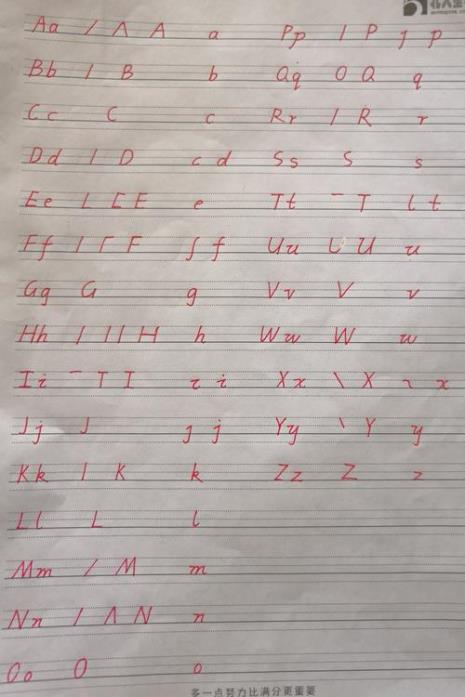 Aa / Λ A a Pp / P J p
Bb / B b Qq O Q q
Cc C c Rr / R r
Dd / D c d Ss S s
Ee L [ E e Tt - T l t
Ff / Γ F ʃ f Uu U U u
Gg G g Vv V v
Hh / l l H h Ww W w
Ii - T I ı i Xx \ X ヽ x
Jj J ȷ j Yy \ Y y
Kk / K k Zz Z z
Ll L l
Mm / M m
Nn / Λ N n
Oo O o
多一点努力比满分更重要